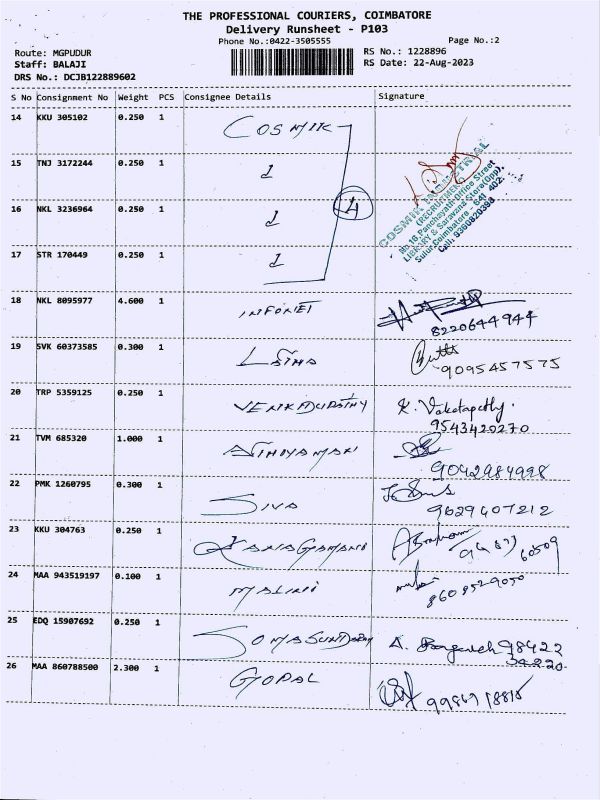 THE PROFESSIONAL COURIERS, COIMBATORE
Delivery Runsheet - P103
Phone No.:0422-3505555 Page No.:2
Route: MGPUDUR RS No.: 1228896
Staff: BALAJI RS Date: 22-Aug-2023
DRS No.: DCJB122889602
S No Consignment No Weight PCS Consignee Details Signature
14 KKU 305102 0.250 1 COSMIK
15 TNJ 3172244 0.250 1
16 NKL 3236964 0.250 1
17 STR 170449 0.250 1
COSMIK INDUSTRIAL
(RECRUITMENT)
No.16, Panchayath Office Street
LIBRARY & Saravana Store(Opp),
Sulur, Coimbatore - 641 402.
Cell: 9360820393
18 NKL 8095977 4.600 1 INFONET
8220644944
19 SVK 60373585 0.300 1 LATHA
9095457575
20 TRP 5359125 0.250 1 K.
9543420270
21 TVM 685320 1.000 1
9042984998
22 PMK 1260795 0.300 1 SIVA
9629407212
23 KKU 304763 0.250 1
24 MAA 943519197 0.100 1 MALINI
8608529050
25 EDQ 15907692 0.250 1 SOMASUNDARAM A. 98422
34220
26 MAA 860788500 2.300 1 GOPAL